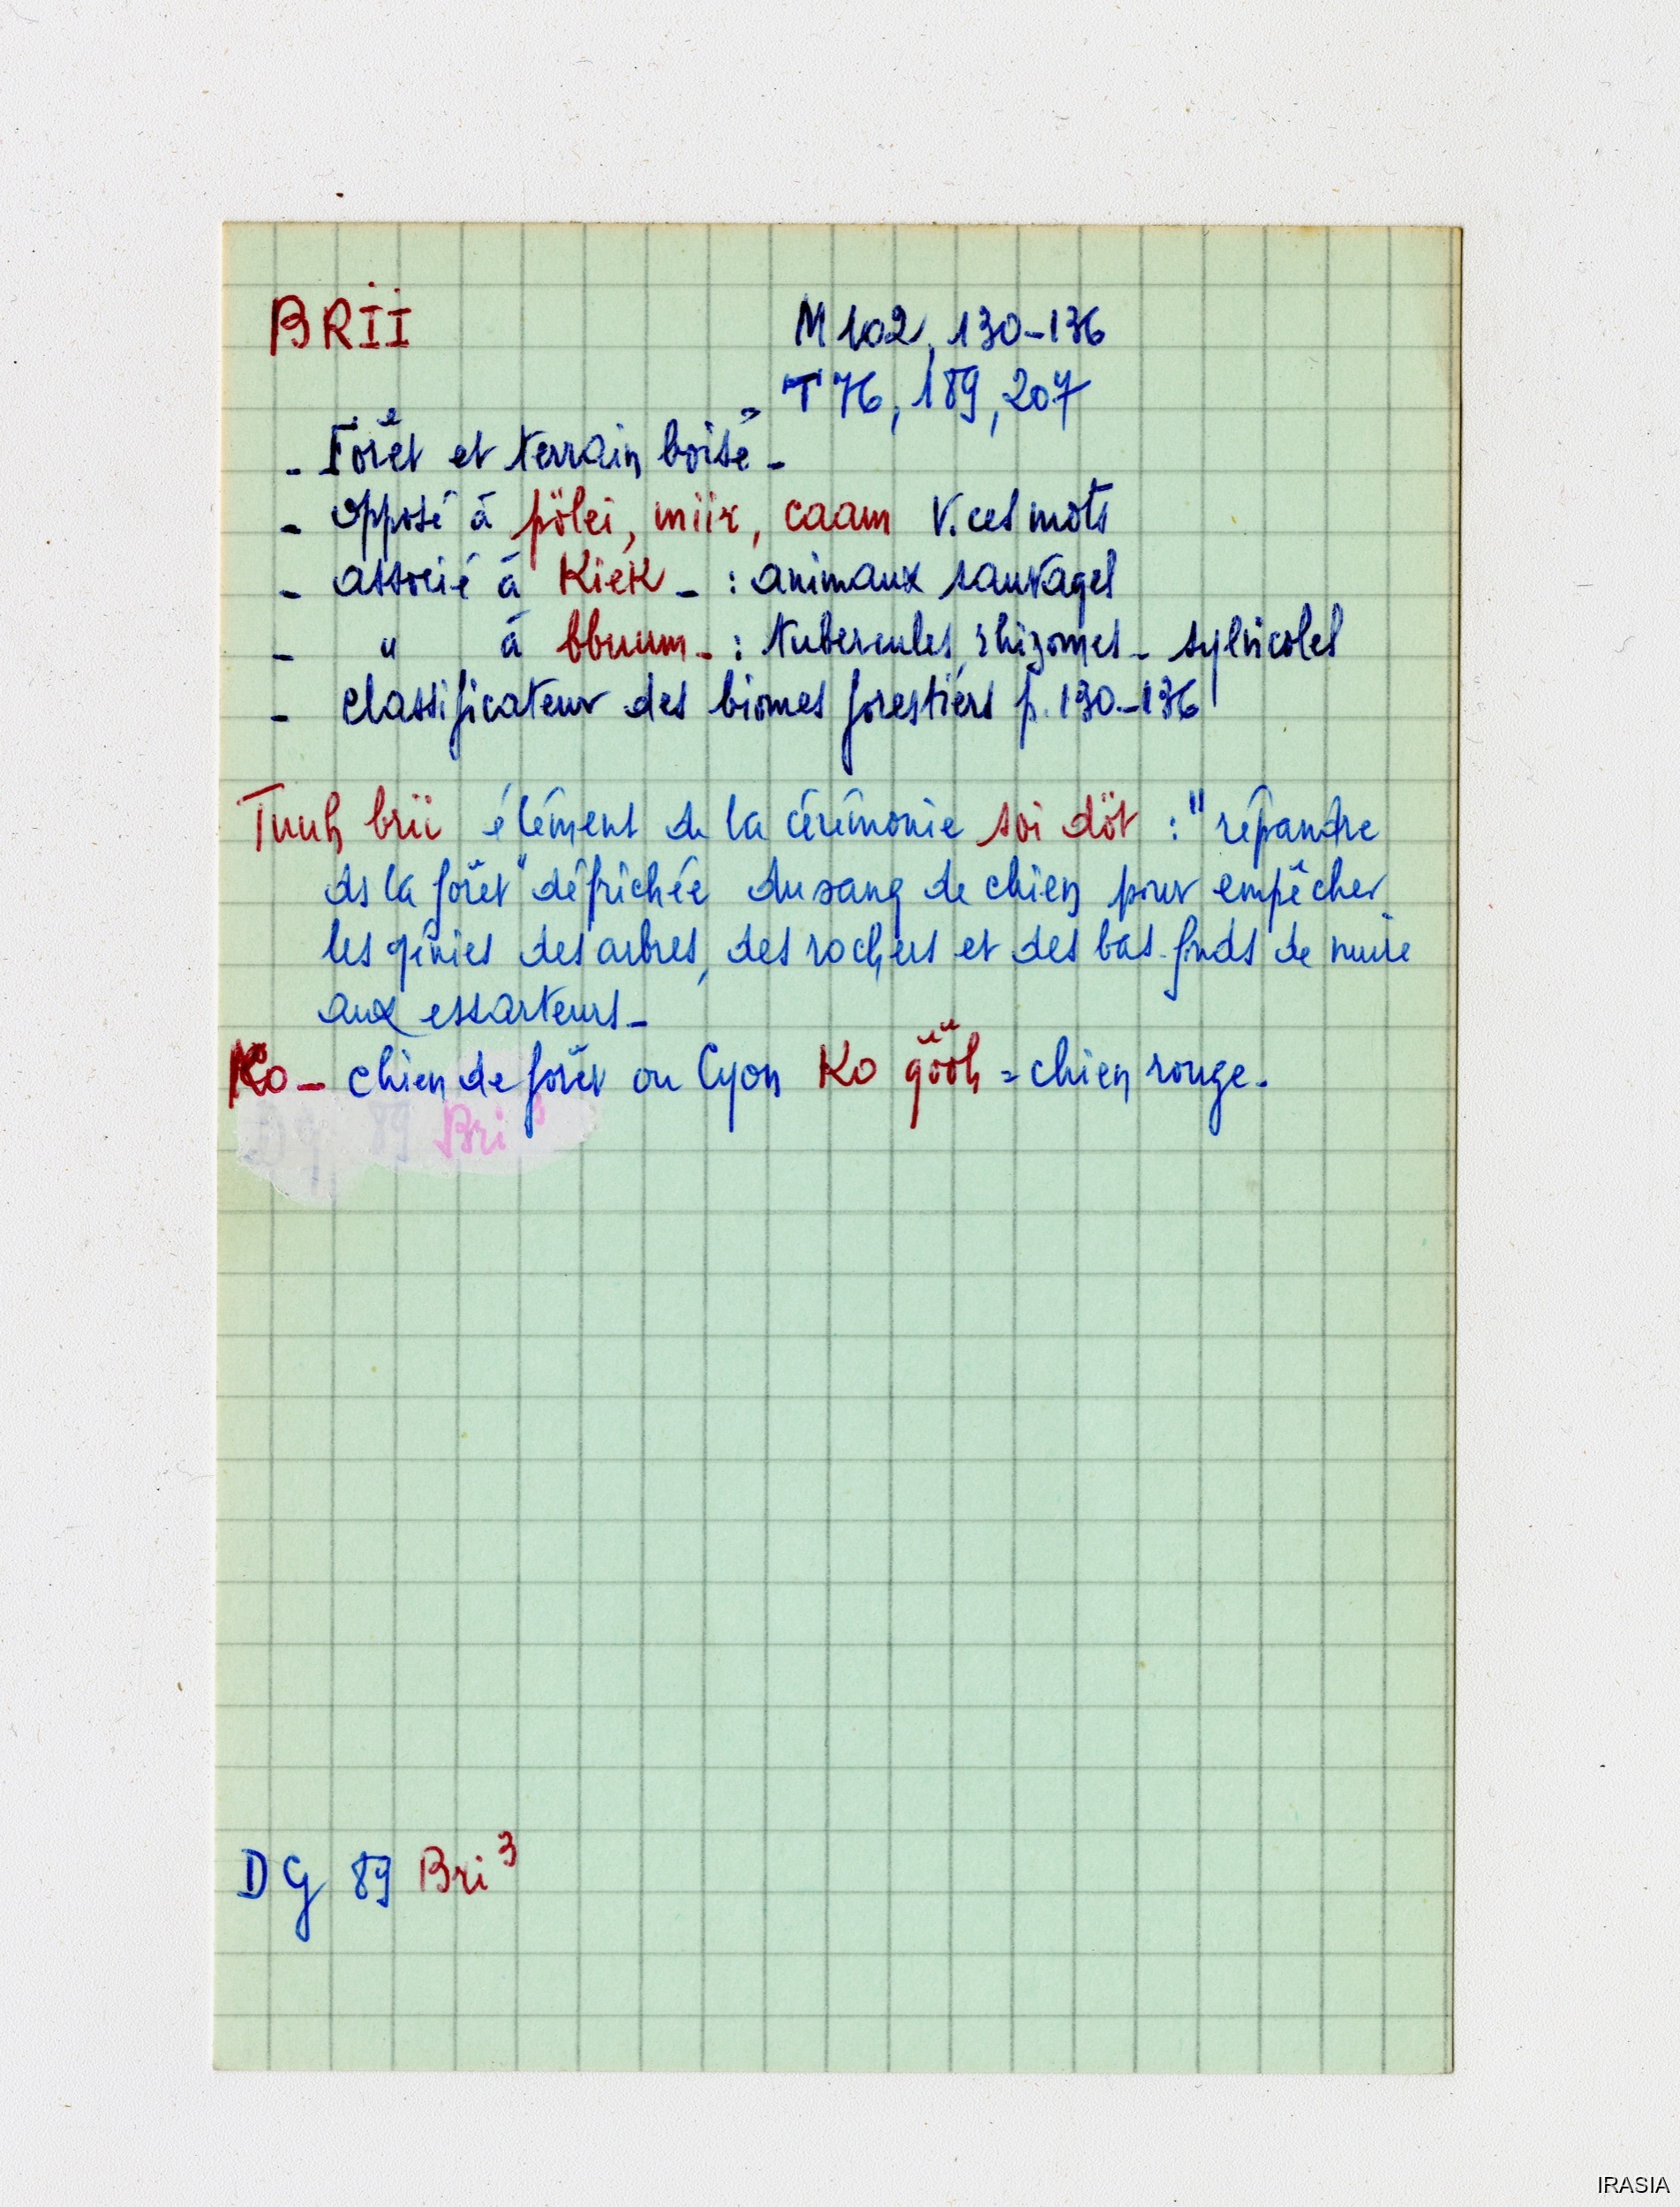 BRII M 102, 130-136
T 76, 189, 207
- Forêt et terrain boisé -
- opposé à pölei, miir, caam V. ces mots
- associé à Kiek - : animaux sauvages
- " à bbuum - : tubercules, rhizomes - sylvicoles
- classificateur des biomes forestiers p. 130-136
Tuuh brii élément de la cérémonie soi döt : "répandre
ds la forêt" défrichée du sang de chien pour empêcher
les génies des arbres, des rochers et des bas-fonds de nuire
aux essarteurs -
Ko - chien de forêt ou Cyon Ko gööh = chien rouge -
DG 89 Bri 3
DG 89 Bri 3
IRASIA